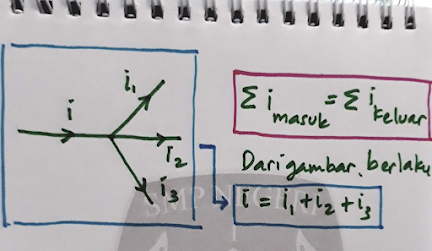 i
i₁
i₂
i₃
Σ i masuk = Σ i keluar
Dari gambar, berlaku
i = i₁ + i₂ + i₃
SMP NEGERI